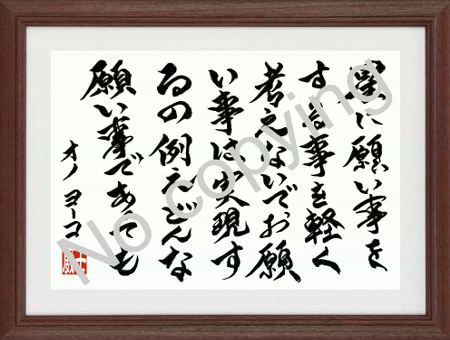 に願い事を
する事を軽く
考えないでお願
い事は実現す
るの例えどんな
願い事であっても
オノ ヨーコ
No Copying